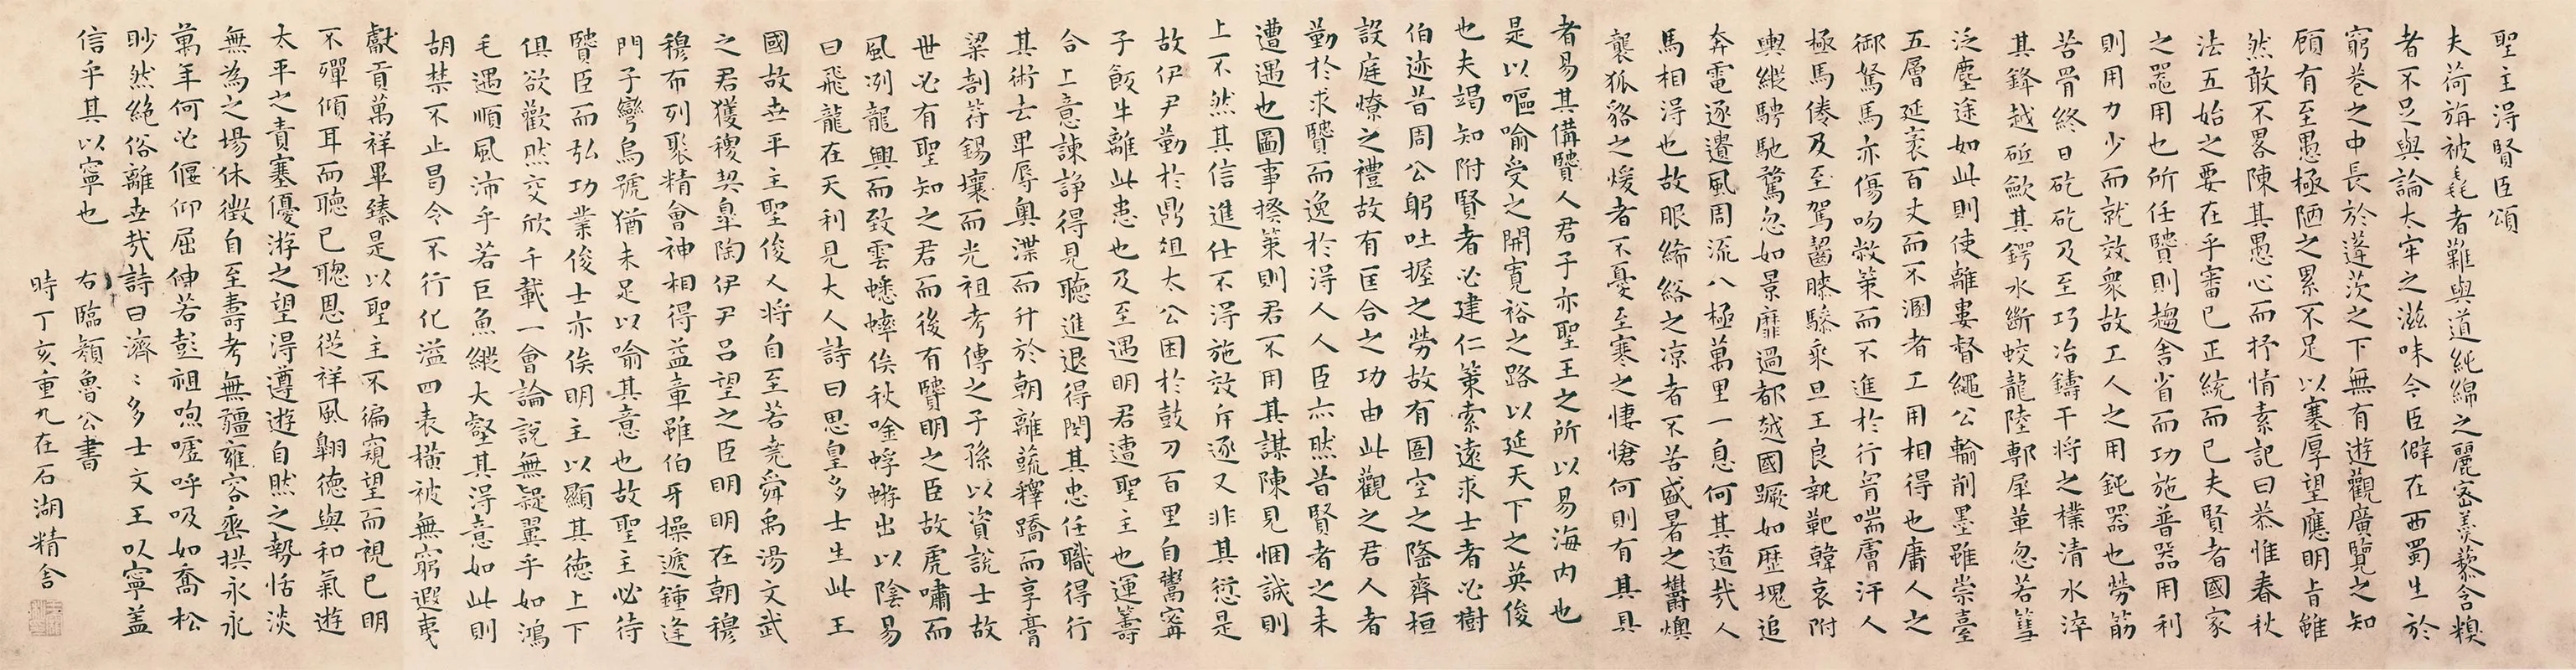 聖主得賢臣頌
夫荷旃被毳者難與道純綿之麗密羹藜含糗
者不足與論太牢之滋味今臣僻在西蜀生於
窮巷之中長於蓬茨之下無有遊觀廣覽之知
顧有至愚極陋之累不足以塞厚望應明旨雖
然敢不畧陳其愚心而抒情素記曰恭惟春秋
法五始之要在乎審己正統而已夫賢者國家
之器用也所任賢則趨舍省而功施普器用利
則用力少而就效衆故工人之用鈍器也勞筋
苦骨終日矻矻及至巧冶鑄干將之樸清水淬
其鋒越砥斂其鍔水斷蛟龍陸剸犀革忽若篲
泛塵塗如此則使離婁督繩公輸削墨雖崇臺
五層延袤百丈而不溷者工用相得也庸人之
御駑馬亦傷吻敝策而不進於行胷喘膚汗人
極馬倦及至駕齧膝驂乘旦王良執靶韓哀附
輿縱騁馳騖忽如景靡過都越國蹶如歷塊追
奔電逐遺風周流八極萬里一息何其遼哉人
馬相得也故服絺綌之凉者不苦盛暑之鬱燠
襲狐貉之煖者不憂至寒之悽愴何則有其具
者易其備賢人君子亦聖王之所以易海內也
是以嘔喻受之開寬裕之路以延天下之英俊
也夫竭知附賢者必建仁策索遠求士者必樹
伯迹昔周公躬吐握之勞故有圄空之隆齊桓
設庭燎之禮故有匡合之功由此觀之君人者
勤於求賢而逸於得人人臣亦然昔賢者之未
遭遇也圖事揆策則君不用其謀陳見悃誠則
上不然其信進仕不得施效斥逐又非其愆是
故伊尹勤於鼎俎太公困於鼓刀百里自鬻甯
子飯牛離此患也及至遇明君遭聖主也運籌
合上意諫諍得見聽進退得関其忠任職得行
其術去卑辱奥渫而升於朝離蔬釋蹻而享膏
粱剖符錫壤而光祖考傳之子孫以資說士故
世必有聖知之君而後有賢明之臣故虎嘯而
風冽龍興而致雲蟋蟀俟秋唫蜉蝣出以陰易
曰飛龍在天利見大人詩曰思皇多士生此王
國故世平主聖俊乂將自至若堯舜禹湯文武
之君獲稷契臯陶伊尹呂望之臣明明在朝穆
穆布列聚精會神相得益章雖伯牙操遞鍾逢
門子彎烏號猶未足以喻其意也故聖主必待
賢臣而弘功業俊士亦俟明主以顯其德上下
俱欲歡然交欣千載一會論說無疑翼乎如鴻
毛遇順風沛乎若巨魚縱大壑其得意如此則
胡禁不止曷令不行化溢四表橫被無窮遐夷
獻貢萬祥畢臻是以聖主不徧窺望而視已明
不殫傾耳而聽已聰恩從祥風翱德與和氣遊
太平之責塞優游之望得遵遊自然之勢恬淡
無為之場休徵自至壽考無疆雍容垂拱永永
萬年何必偃仰屈伸若彭祖呴噓呼吸如喬松
眇然絶俗離世哉詩曰濟〻多士文王以寧盖
信乎其以寧也
右臨顏魯公書
時丁亥重九在石湖精舍